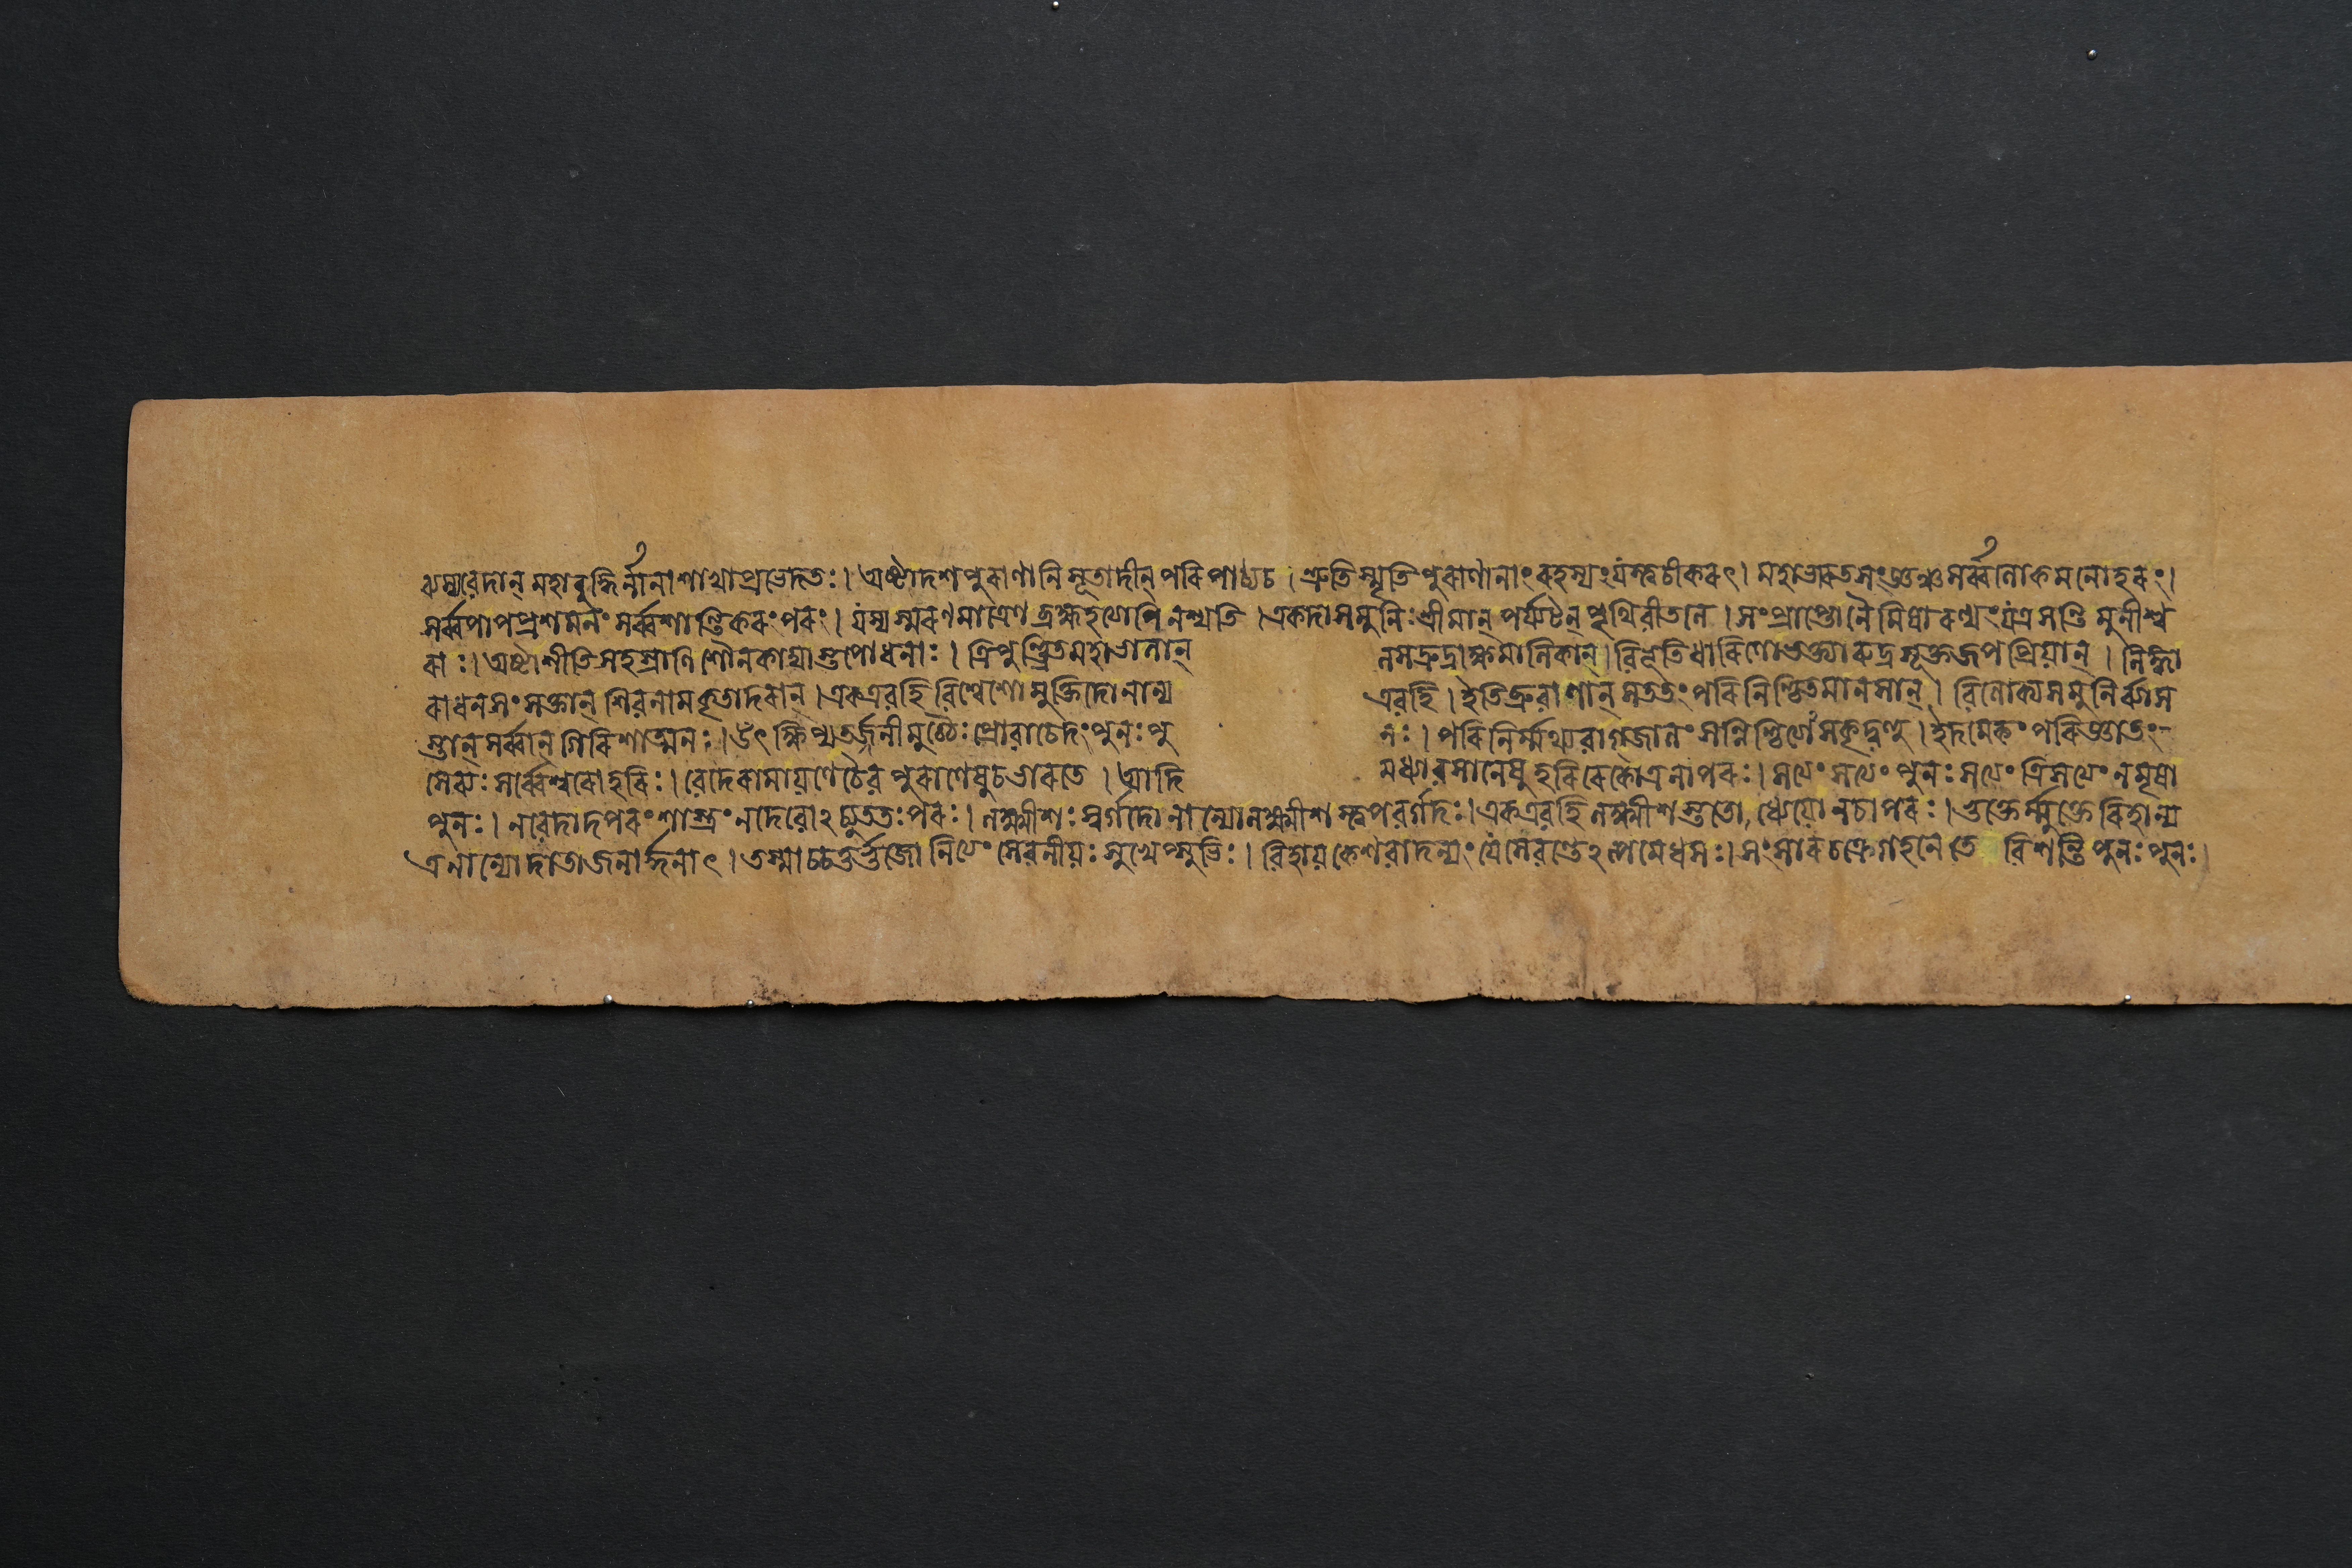 ব্যস্য বেদান্ মহাবুদ্ধির্ন্নানাশাখাপ্রভেদতঃ। অষ্টাদশপুরাণানি সূতাদীন্ পরিপাঠ্য চ। শ্রুতিস্মৃতিপুরাণানাং রহস্যং যস্ত্বচীকরৎ। মহাভারতসংজ্ঞঞ্চ সর্ব্বলোকমনোহরং।
সর্ব্বপাপপ্রশমনং সর্ব্বশান্তিকরং পরং। যস্য স্মরণমাত্রেণ ব্রহ্মহত্যাপি নশ্যতি। একদা স মুনিঃ শ্রীমান্ পর্যটন্ পৃথিবীতলে। সংপ্রাপ্তো নৈমিষারণ্যং যত্র সন্তি মুনীশ্ব
রাঃ। অষ্টাশীতিসহস্রাণি শৌনকাদ্যাস্তপোধনাঃ। ত্রিপুণ্ড্রিতমহাভালান্ লসদ্রুদ্রাক্ষমালিকান্। বিভূতিধারিণো ভক্ত্যা রুদ্রসূক্তজপপ্রিয়ান্। লিঙ্গা
রাধনসংসক্তান্ শিবনামকৃতাদরান্। এক এব হি বিশ্বেশো মুক্তিদো নান্য এব হি। ইতি ব্রুবাণান্ সততং পরিনিশ্চিতমানসান্। বিলোক্য স মুনির্ব্যাস
স্তান্ সর্ব্বান্ গিরিশাত্মনঃ। উৎক্ষিপ্য তর্জ্জনীমুচ্চৈঃ প্রোবাচেদং পুনঃ পু নঃ। পরিনির্ম্মথ্য বাগ্জালং সুনিশ্চিত্যেসকৃদ্বহু। ইদমেকং পরিজ্ঞাতং-
সেব্যঃ সর্ব্বেশ্বরো হরিঃ। বেদে রামায়ণে চৈব পুরাণেষু চ ভারতে। আদি মধ্যাবসানেষু হরিরেকোত্র নাপরঃ। সত্যং সত্যং পুনঃ সত্যং ত্রিসত্যং ন মৃষা
পুনঃ। ন বেদাদপরং শাস্ত্রং ন দেবোঽচ্যুততঃ পরঃ। লক্ষ্মীশঃ স্বর্গদো নান্যো লক্ষ্মীশস্ত্বপবর্গদঃ। এক এব হি লক্ষ্মীশস্ততো, ধ্যেয়ো ন চাপরঃ। ভুক্তের্ম্মুক্তেরিহান্য
ত্র নান্যো দাতা জনার্দ্দনাৎ। তস্মাচ্চতুর্ভুজো নিত্যং সেবনীয়ঃ সুখেপ্সুভিঃ। বিহায় কেশবাদন্যং যে সেবন্তেঽল্পমেধসঃ। সংসারচক্রে গহনে তে বিশন্তি পুনঃ পুনঃ।